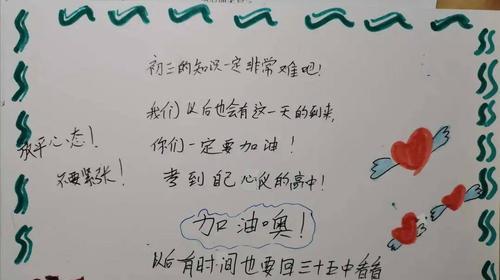 初三的知识一定非常难吧!
我们以后也会有这一天的到来,
你们一定要加油!
考到自己心仪的高中!
放平心态!
不要紧张!
加油噢!
以后有时间也要回三十五中看看